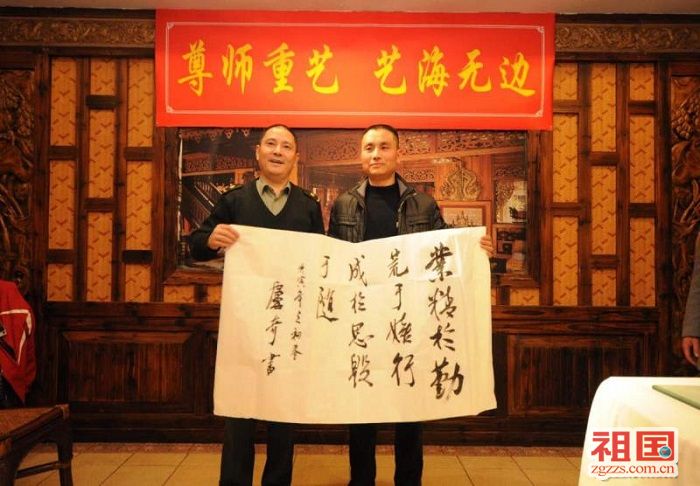 尊师重艺 艺海无边
業精於勤
荒于嬉行
成於思毁
于随
書
祖国
zgzzs.com.cn